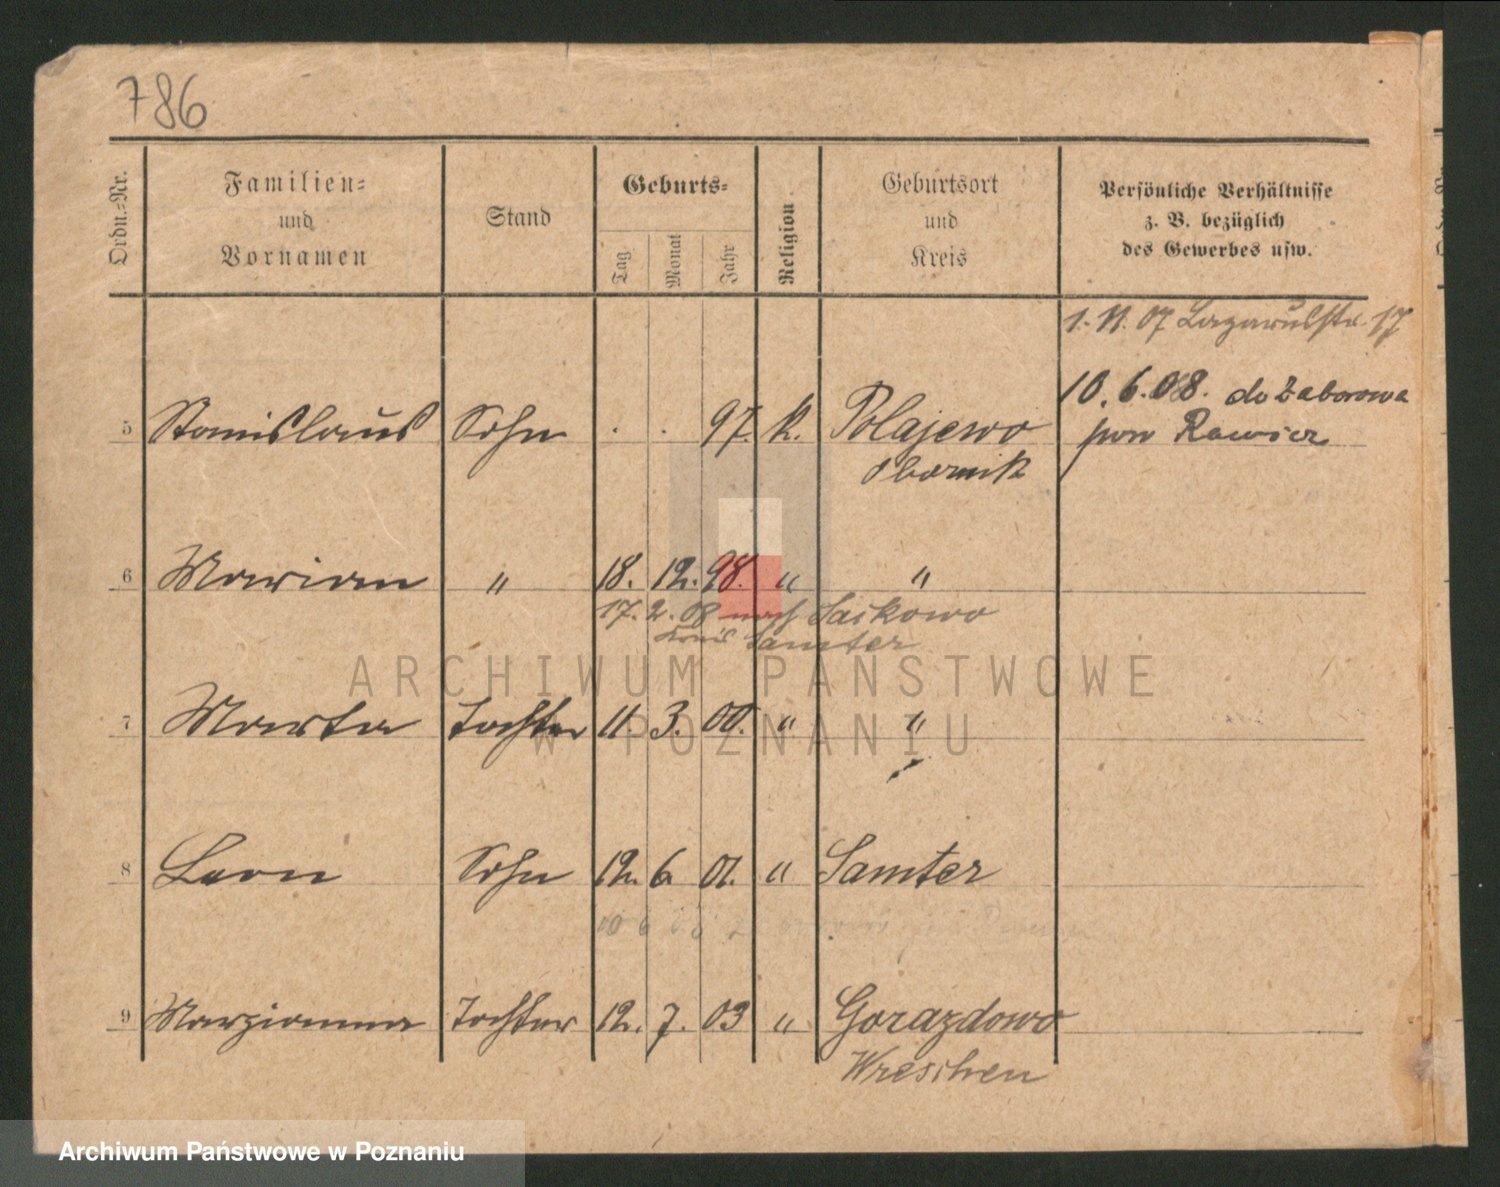 786
Ordn.-Nr.
Familien-
und
Vornamen
Stand
Geburts-
Tag
Monat
Jahr
Religion
Geburtsort
und
Kreis
Persönliche Verhältnisse
z. B. bezüglich
des Gewerbes usw.
1. 11. 07 Lazarusstr. 17
10. 6. 08. do Zaborowa
pow Rawicz
5 Stanislaus Sohn . . 97. k. Polajewo
Obornik
6 Marian " 18. 12. 98. " "
17. 2. 08 nach Saikowo
Kreis Samter
ARCHIWUM PAŃSTWOWE
W POZNANIU
7 Marta Tochter 11. 3. 00. " "
8 Leon Sohn 12. 6 01. " Samter
10 6 08
9 Marzianna Tochter 12. 7. 03 " Gorazdowo
Wreschen
Archiwum Państwowe w Poznaniu